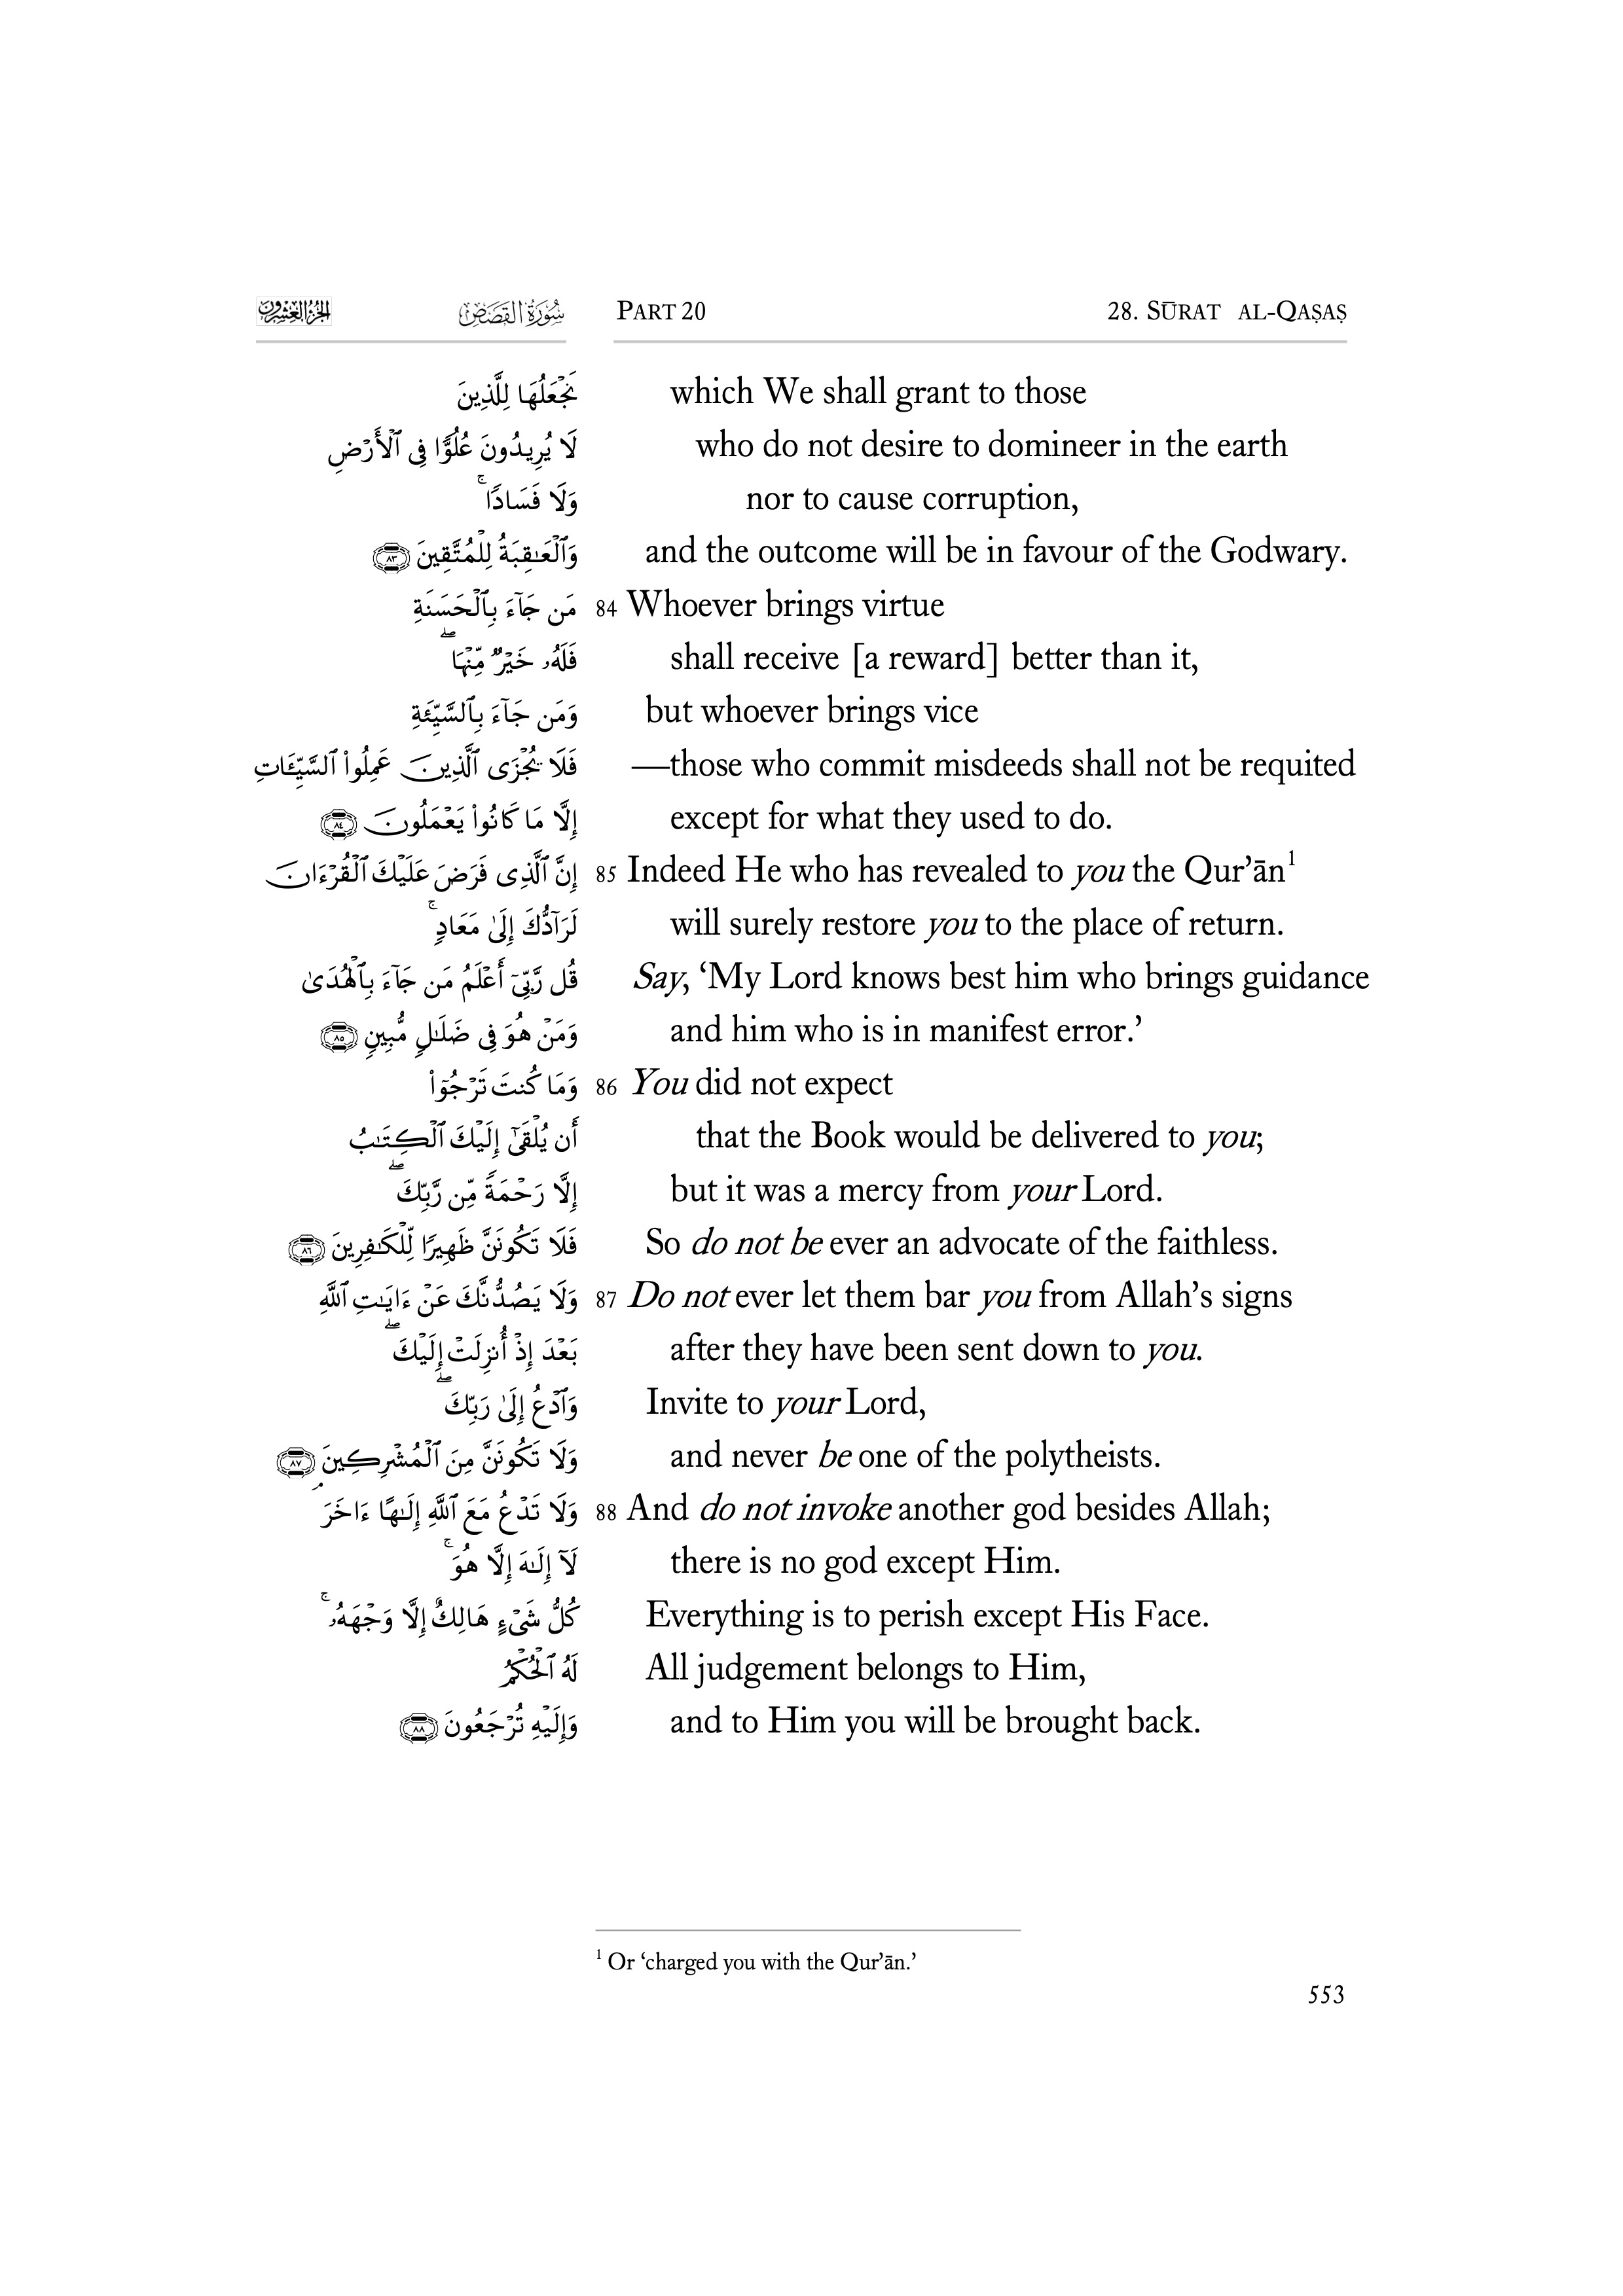 الجزء العشرون سُورَةُ القَصَصِ PART 20 28. SŪRAT AL-QAṢAṢ
نَجْعَلُهَا لِلَّذِينَ which We shall grant to those
لَا يُرِيدُونَ عُلُوًّا فِى ٱلْأَرْضِ who do not desire to domineer in the earth
وَلَا فَسَادًا ۚ nor to cause corruption,
وَٱلْعَـٰقِبَةُ لِلْمُتَّقِينَ ﴿٨٣﴾ and the outcome will be in favour of the Godwary.
مَن جَآءَ بِٱلْحَسَنَةِ 84 Whoever brings virtue
فَلَهُۥ خَيْرٌ مِّنْهَا ۖ shall receive [a reward] better than it,
وَمَن جَآءَ بِٱلسَّيِّئَةِ but whoever brings vice
فَلَا يُجْزَى ٱلَّذِينَ عَمِلُوا۟ ٱلسَّيِّـَٔاتِ —those who commit misdeeds shall not be requited
إِلَّا مَا كَانُوا۟ يَعْمَلُونَ ﴿٨٤﴾ except for what they used to do.
إِنَّ ٱلَّذِى فَرَضَ عَلَيْكَ ٱلْقُرْءَانَ 85 Indeed He who has revealed to you the Qur’ān1
لَرَآدُّكَ إِلَىٰ مَعَادٍ ۚ will surely restore you to the place of return.
قُل رَّبِّىٓ أَعْلَمُ مَن جَآءَ بِٱلْهُدَىٰ Say, ‘My Lord knows best him who brings guidance
وَمَنْ هُوَ فِى ضَلَـٰلٍ مُّبِينٍ ﴿٨٥﴾ and him who is in manifest error.’
وَمَا كُنتَ تَرْجُوٓا۟ 86 You did not expect
أَن يُلْقَىٰٓ إِلَيْكَ ٱلْكِتَـٰبُ that the Book would be delivered to you;
إِلَّا رَحْمَةً مِّن رَّبِّكَ ۖ but it was a mercy from your Lord.
فَلَا تَكُونَنَّ ظَهِيرًا لِّلْكَـٰفِرِينَ ﴿٨٦﴾ So do not be ever an advocate of the faithless.
وَلَا يَصُدُّنَّكَ عَنْ ءَايَـٰتِ ٱللَّهِ 87 Do not ever let them bar you from Allah’s signs
بَعْدَ إِذْ أُنزِلَتْ إِلَيْكَ ۖ after they have been sent down to you.
وَٱدْعُ إِلَىٰ رَبِّكَ ۖ Invite to your Lord,
وَلَا تَكُونَنَّ مِنَ ٱلْمُشْرِكِينَ ﴿٨٧﴾ and never be one of the polytheists.
وَلَا تَدْعُ مَعَ ٱللَّهِ إِلَـٰهًا ءَاخَرَ ۘ 88 And do not invoke another god besides Allah;
لَآ إِلَـٰهَ إِلَّا هُوَ ۚ there is no god except Him.
كُلُّ شَىْءٍ هَالِكٌ إِلَّا وَجْهَهُۥ ۚ Everything is to perish except His Face.
لَهُ ٱلْحُكْمُ All judgement belongs to Him,
وَإِلَيْهِ تُرْجَعُونَ ﴿٨٨﴾ and to Him you will be brought back.
1 Or ‘charged you with the Qur’ān.’
553